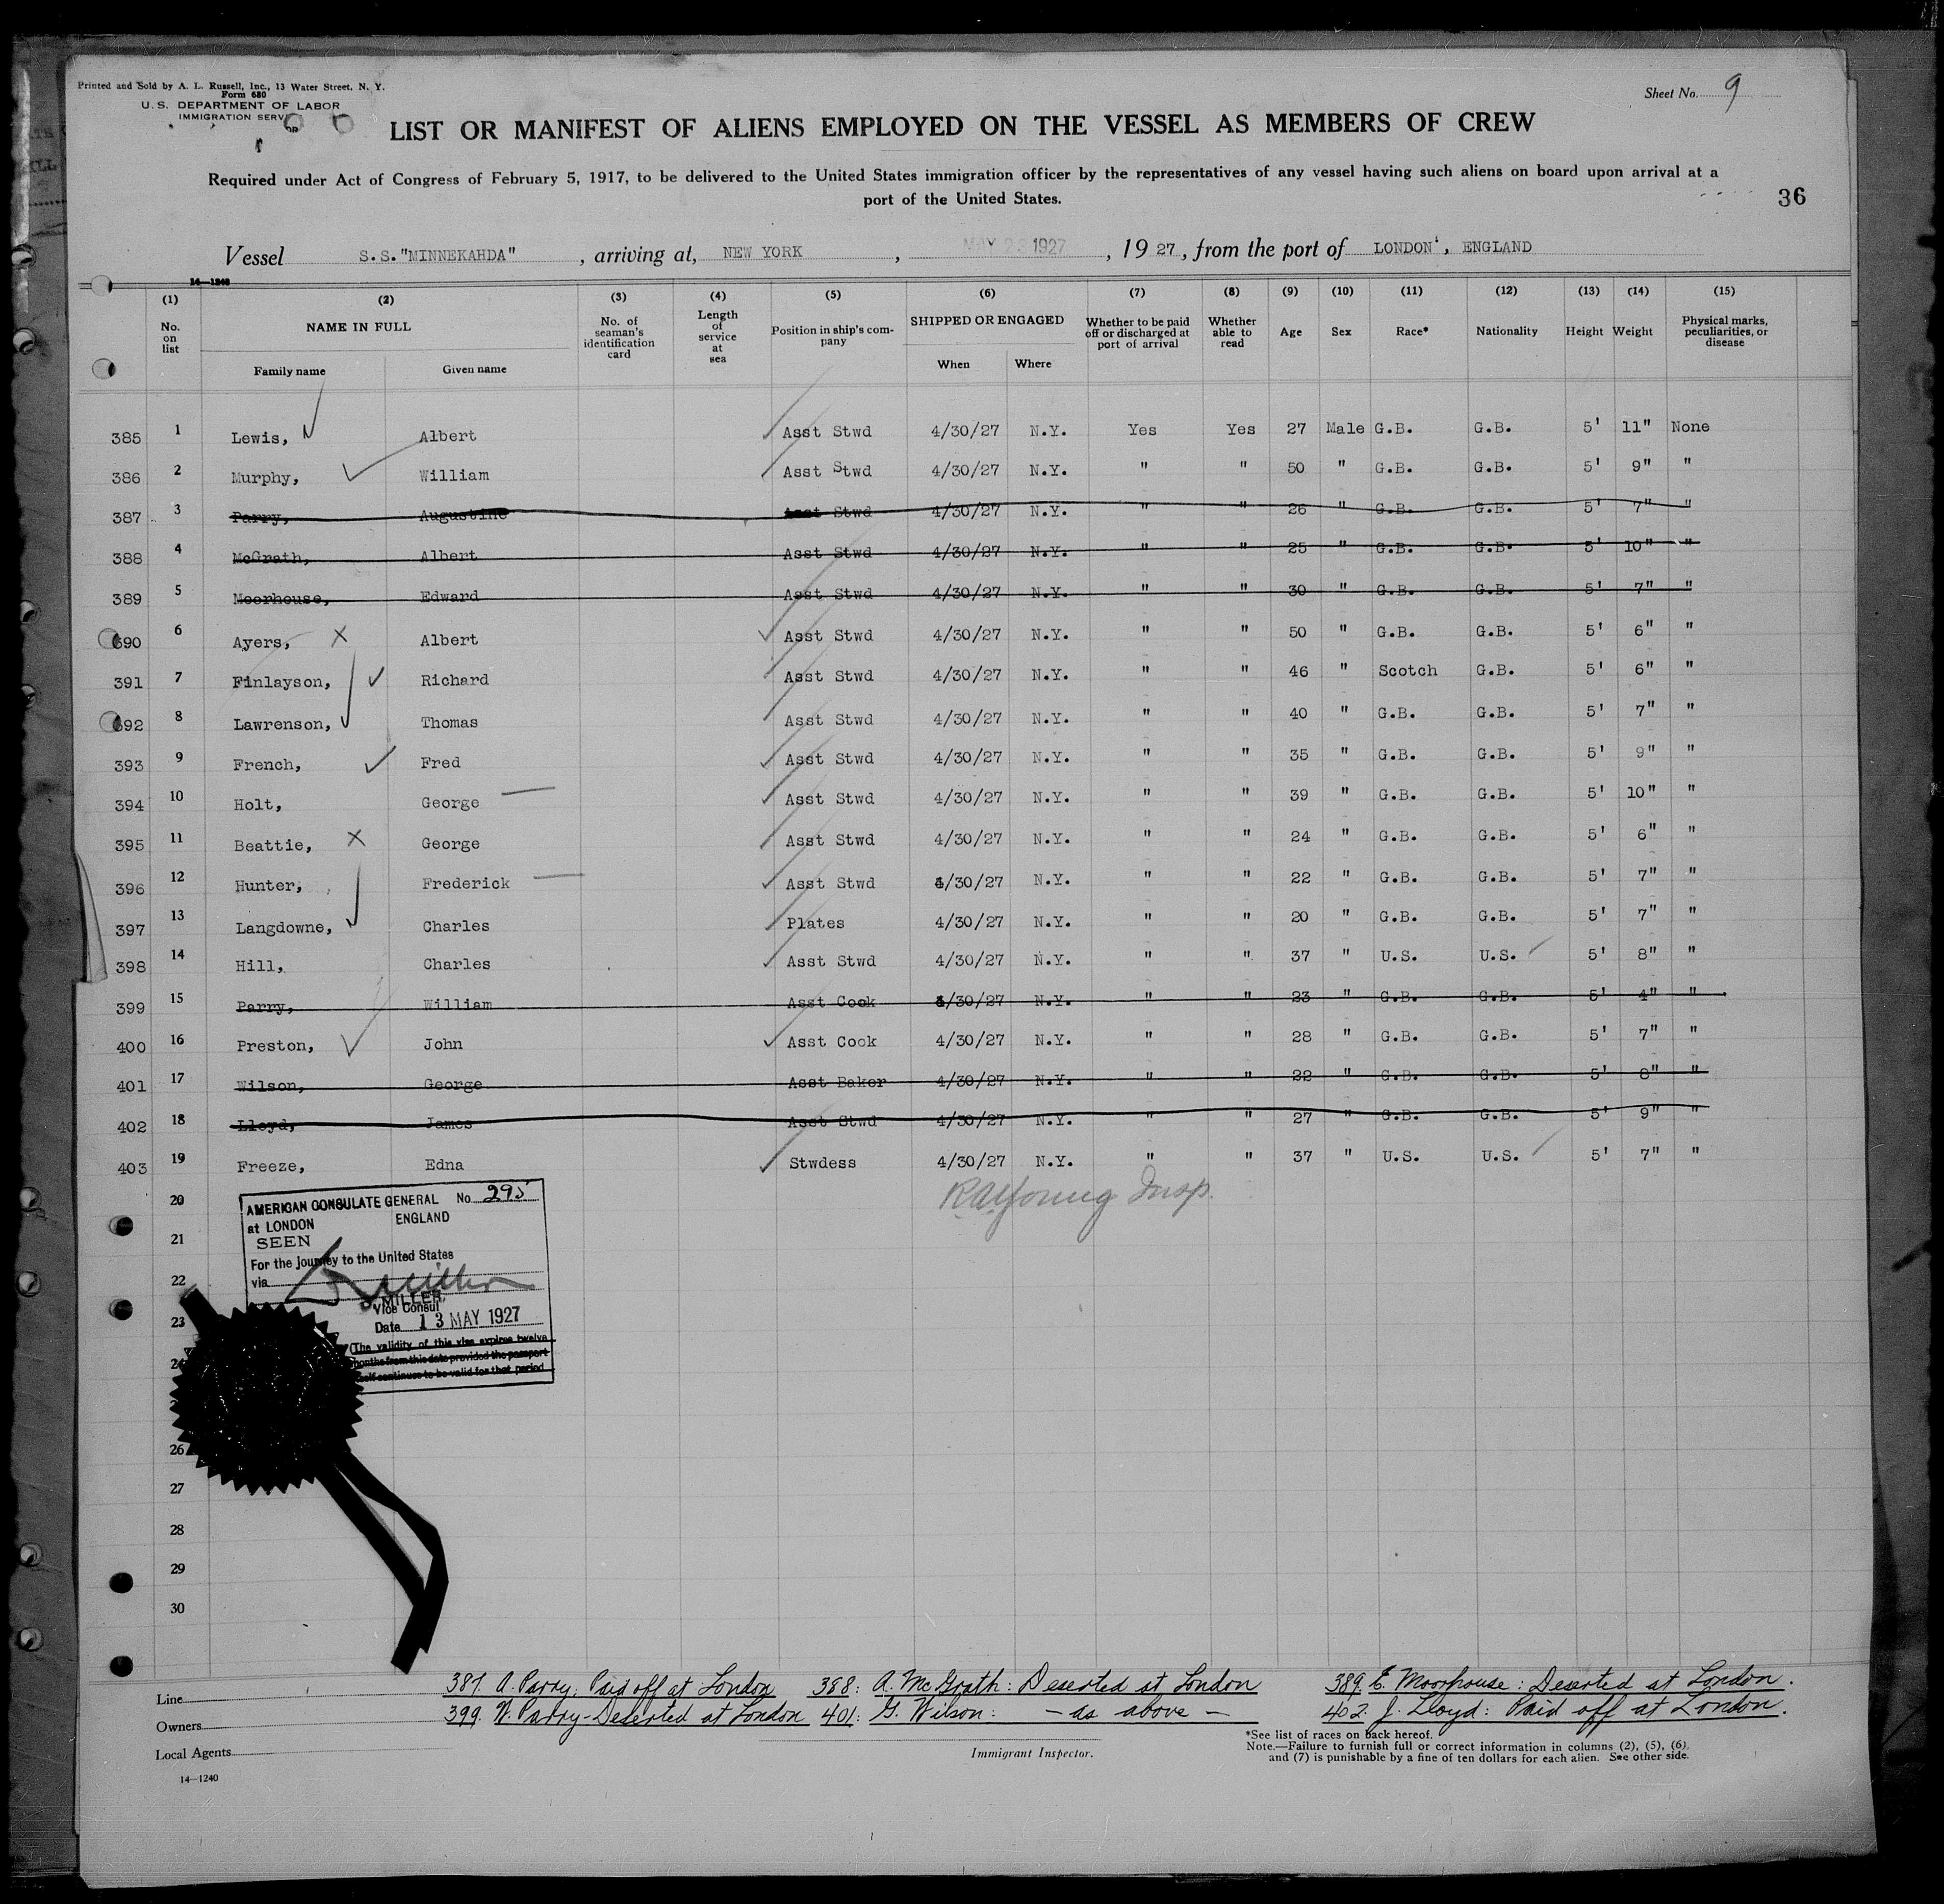 Printed and Sold by A. L. Russell, Inc., 13 Water Street, N. Y.
Form 680
U. S. DEPARTMENT OF LABOR
IMMIGRATION SERV
Sheet No. 9
LIST OR MANIFEST OF ALIENS EMPLOYED ON THE VESSEL AS MEMBERS OF CREW
Required under Act of Congress of February 5, 1917, to be delivered to the United States immigration officer by the representatives of any vessel having such aliens on board upon arrival at a
port of the United States.
36
Vessel S.S."MINNEKAHDA", arriving at, NEW YORK, MAY 23 1927, 19 27, from the port of LONDON, ENGLAND
14—1240
(1) (2) (3) (4) (5) (6) (7) (8) (9) (10) (11) (12) (13) (14) (15)
No. on list NAME IN FULL No. of seaman's identification card Length of service at sea Position in ship's company SHIPPED OR ENGAGED Whether to be paid off or discharged at port of arrival Whether able to read Age Sex Race* Nationality Height Weight Physical marks, peculiarities, or disease
Family name Given name When Where
385 1 Lewis, Albert Asst Stwd 4/30/27 N.Y. Yes Yes 27 Male G.B. G.B. 5' 11" None
386 2 Murphy, William Asst Stwd 4/30/27 N.Y. " " 50 " G.B. G.B. 5' 9" "
387 3 Parry, Augustine Asst Stwd 4/30/27 N.Y. " " 26 " G.B. G.B. 5' 7" "
388 4 McGrath, Albert Asst Stwd 4/30/27 N.Y. " " 25 " G.B. G.B. 5' 10" "
389 5 Moorhouse, Edward Asst Stwd 4/30/27 N.Y. " " 30 " G.B. G.B. 5' 7" "
390 6 Ayers, Albert Asst Stwd 4/30/27 N.Y. " " 50 " G.B. G.B. 5' 6" "
391 7 Finlayson, Richard Asst Stwd 4/30/27 N.Y. " " 46 " Scotch G.B. 5' 6" "
392 8 Lawrenson, Thomas Asst Stwd 4/30/27 N.Y. " " 40 " G.B. G.B. 5' 7" "
393 9 French, Fred Asst Stwd 4/30/27 N.Y. " " 35 " G.B. G.B. 5' 9" "
394 10 Holt, George Asst Stwd 4/30/27 N.Y. " " 39 " G.B. G.B. 5' 10" "
395 11 Beattie, George Asst Stwd 4/30/27 N.Y. " " 24 " G.B. G.B. 5' 6" "
396 12 Hunter, Frederick Asst Stwd 4/30/27 N.Y. " " 22 " G.B. G.B. 5' 7" "
397 13 Langdowne, Charles Plates 4/30/27 N.Y. " " 20 " G.B. G.B. 5' 7" "
398 14 Hill, Charles Asst Stwd 4/30/27 N.Y. " " 37 " U.S. U.S. 5' 8" "
399 15 Parry, William Asst Cook 4/30/27 N.Y. " " 23 " G.B. G.B. 5' 4" "
400 16 Preston, John Asst Cook 4/30/27 N.Y. " " 28 " G.B. G.B. 5' 7" "
401 17 Wilson, George Asst Baker 4/30/27 N.Y. " " 22 " G.B. G.B. 5' 8" "
402 18 Lloyd, James Asst Stwd 4/30/27 N.Y. " " 27 " G.B. G.B. 5' 9" "
403 19 Freeze, Edna Stwdess 4/30/27 N.Y. " " 37 " U.S. U.S. 5' 7" "
RA Young Insp.
20
21
22
23
26
27
28
29
30
AMERICAN CONSULATE GENERAL No 295
at LONDON ENGLAND
SEEN
For the journey to the United States
via
D Miller
D. MILLER
Vice Consul
Date 13 MAY 1927
(The validity of this visa expires twelve
months from this date provided the passport
itself continues to be valid for that period
387. A. Parry: Paid off at London 388: A. McGrath: Deserted at London 389. E. Moorhouse: Deserted at London.
399. W. Parry - Deserted at London 401: G. Wilson: - as above - 402. J. Lloyd: Paid off at London.
Line
Owners
Local Agents
Immigrant Inspector.
*See list of races on back hereof.
Note.—Failure to furnish full or correct information in columns (2), (5), (6),
and (7) is punishable by a fine of ten dollars for each alien. See other side.
14—1240